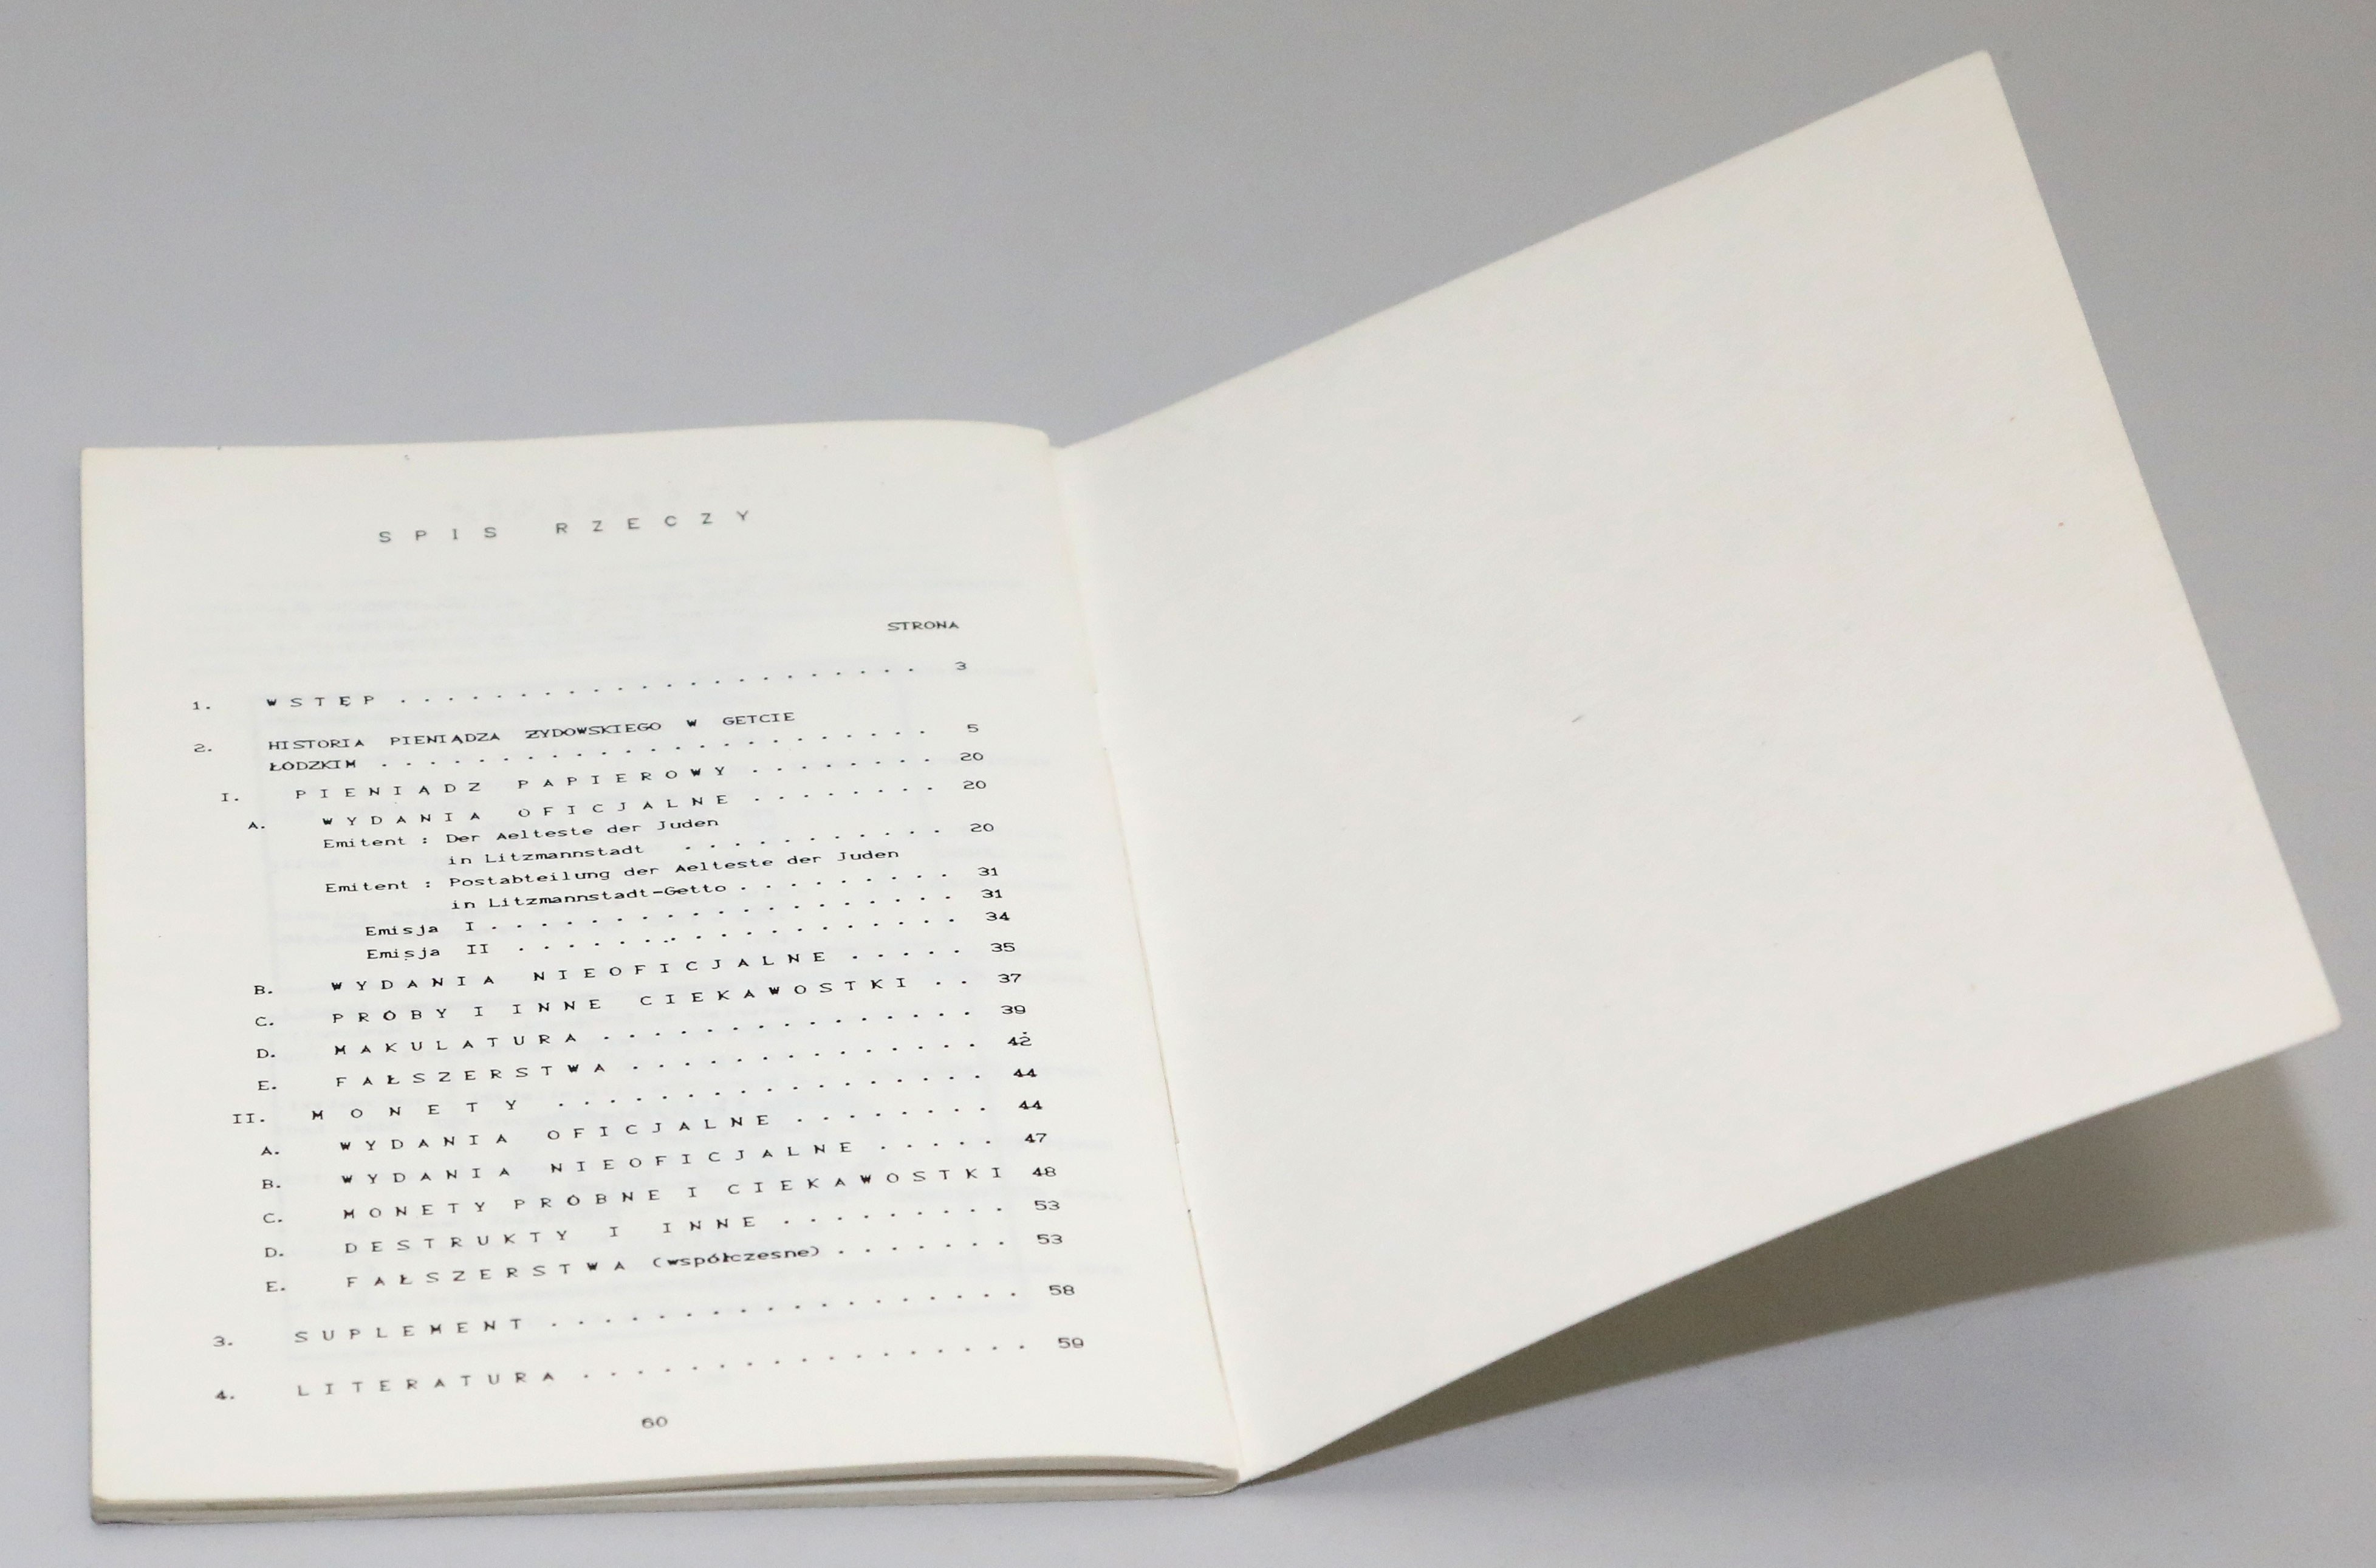 SPIS RZECZY
STRONA
1. WSTĘP . . . . . . . . . . . . . . . . . . . . . . 3
2. HISTORIA PIENIĄDZA ŻYDOWSKIEGO W GETCIE
ŁODZKIM . . . . . . . . . . . . . . . . . . . . . . 5
I. PIENIĄDZ PAPIEROWY . . . . . . . . 20
A. WYDANIA OFICJALNE . . . . . . . . 20
Emitent : Der Aelteste der Juden
in Litzmannstadt . . . . . . . . . . . 20
Emitent : Postabteilung der Aelteste der Juden
in Litzmannstadt-Getto . . . . . . . . . 31
Emisja I . . . . . . . . . . . . . . . . . . . 31
Emisja II . . . . . . . . . . . . . . . . . . 34
B. WYDANIA NIEOFICJALNE . . . . . 35
C. PRÓBY I INNE CIEKAWOSTKI . . 37
D. MAKULATURA . . . . . . . . . . . . . . . 39
E. FAŁSZERSTWA . . . . . . . . . . . . . . 42
II. MONETY . . . . . . . . . . . . . . . . . 44
A. WYDANIA OFICJALNE . . . . . . . . 44
B. WYDANIA NIEOFICJALNE . . . . . 47
C. MONETY PRÓBNE I CIEKAWOSTKI 48
D. DESTRUKTY I INNE . . . . . . . . . 53
E. FAŁSZERSTWA (współczesne) . . . . . . . 53
3. SUPLEMENT . . . . . . . . . . . . . . . . . . 58
4. LITERATURA . . . . . . . . . . . . . . . . . 59
60